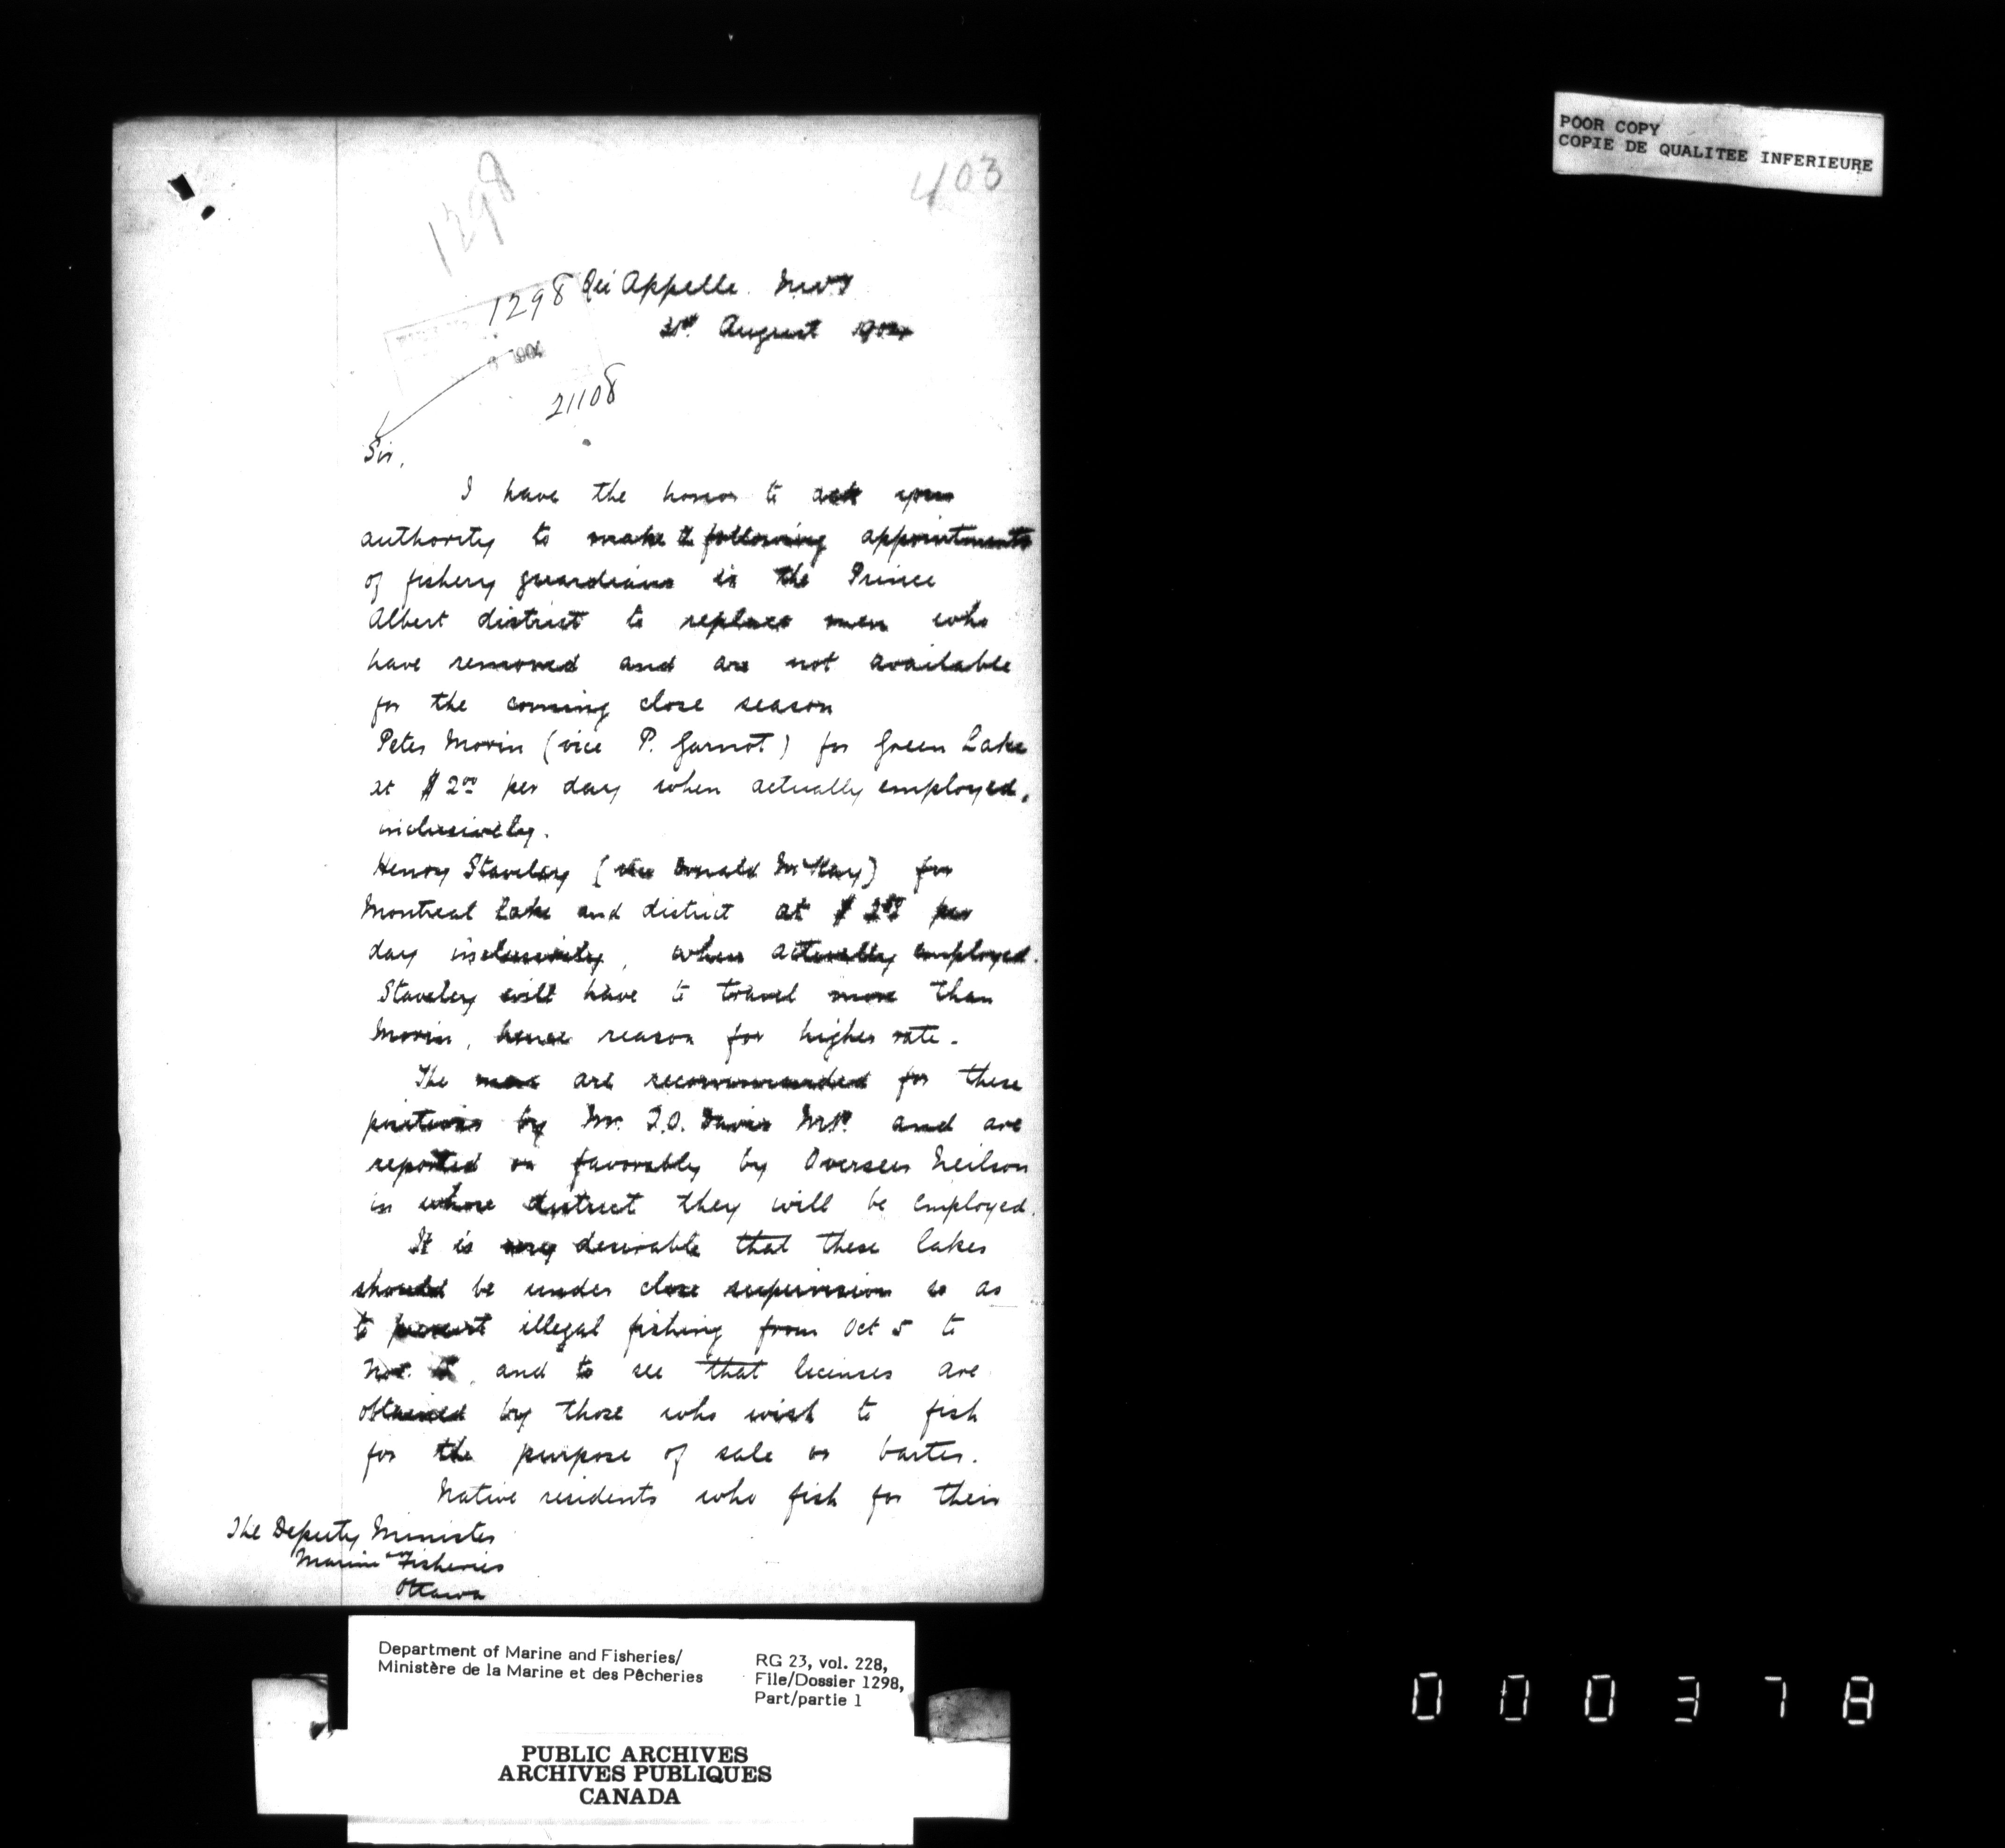 POOR COPY
COPIE DE QUALITEE INFERIEURE
403
1298
1298 Qu'Appelle. NWT
31st August
1904
21108
Sir,
I have the honor to ask your
authority to make the following appointments
of fishery guardians in the Prince
Albert district to replace men who
have removed and are not available
for the coming close season
Peter Morin (vice P. Garnot) for Green Lake
at $2.00 per day when actually employed,
inclusively.
Henry Staveley (vice Donald McKay) for
Montreal Lake and district at $ per
day inclusively, when actually employed.
Staveley will have to travel more than
Morin, hence reason for higher rate.
The men are recommended for these
positions by Mr. T.O. Davis M.P. and are
reported on favorably by Overseer Neilson
in whose district they will be employed.
It is very desirable that these lakes
should be under close supervision so as
to prevent illegal fishing from Oct 5 to
Nov. and to see that licenses are
obtained by those who wish to fish
for the purpose of sale or barter.
Native residents who fish for their
The Deputy Minister
Marine and Fisheries
Ottawa
Department of Marine and Fisheries/
Ministère de la Marine et des Pêcheries
RG 23, vol. 228,
File/Dossier 1298,
Part/partie 1
PUBLIC ARCHIVES
ARCHIVES PUBLIQUES
CANADA
000378